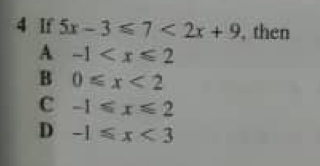 4 If 5x – 3 ⩽ 7 < 2x + 9, then
A –1 < x ⩽ 2
B 0 ⩽ x < 2
C –1 ⩽ x ⩽ 2
D –1 ⩽ x < 3